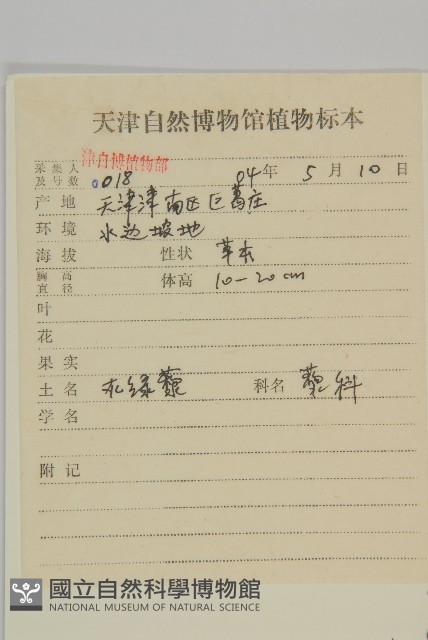 天津自然博物馆植物标本
采集人
及号数
018 04年 5月10日
产地 天津津南区巨葛庄
环境 水边坡地
海拔 性状 草本
胸高
直径 体高 10-20cm
叶
花
果实
土名 水绿蓼 科名 蓼科
学名
附记
國立自然科學博物館
NATIONAL MUSEUM OF NATURAL SCIENCE